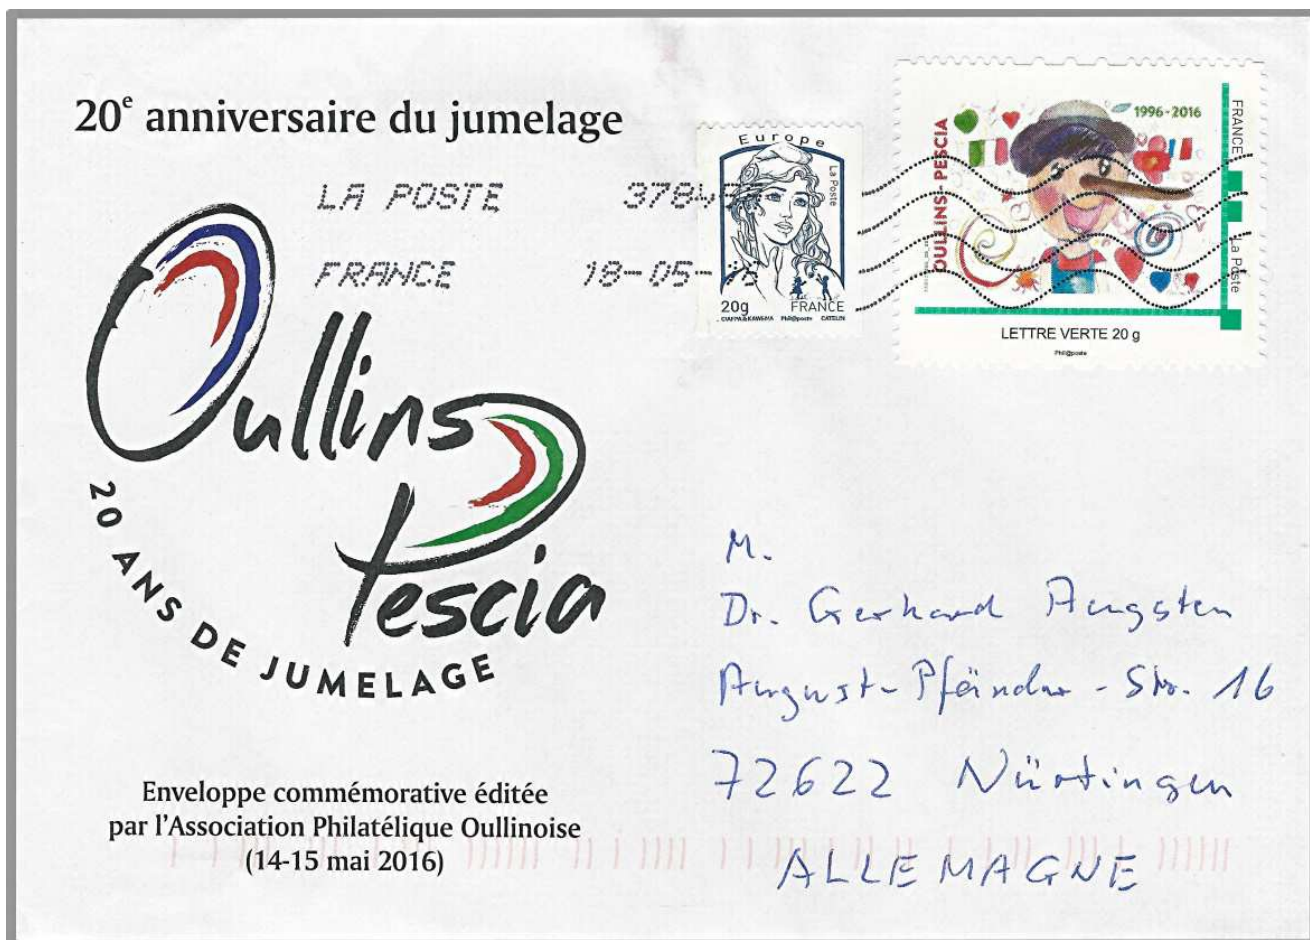 20e anniversaire du jumelage
LA POSTE 3784
FRANCE 18-05-
Europe
La Poste
20g FRANCE
CIAPPA & KAWENA Phil@poste CATELIN
1996-2016
OULLINS-PESCIA
FRANCE
La Poste
LETTRE VERTE 20 g
Phil@poste
Oullins
Pescia
20 ANS DE JUMELAGE
M.
Dr. Gerhard Augsten
August-Pfänder-Str. 16
72622 Nürtingen
ALLEMAGNE
Enveloppe commémorative éditée
par l'Association Philatélique Oullinoise
(14-15 mai 2016)